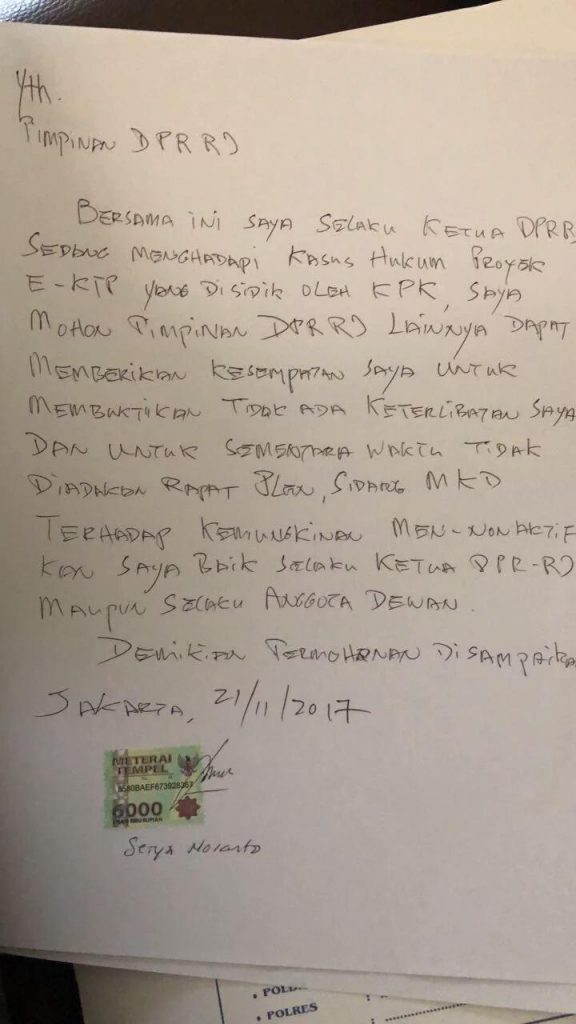 Yth.
Pimpinan DPR RI
Bersama ini saya selaku Ketua DPRR
sedang menghadapi kasus hukum proyek
E-KTP yang disidik oleh KPK, saya
mohon pimpinan DPR RI lainnya dapat
memberikan kesempatan saya untuk
membuktikan tidak ada keterlibatan saya
dan untuk sementara waktu tidak
diadakan rapat plen, sidang MKD
terhadap kemungkinan men-nonaktif
kan saya baik selaku Ketua DPR-RI
maupun selaku anggota dewan.
Demikian permohonan disampaika
Jakarta, 21/11/2017
METERAI
TEMPEL
6000
Setya Novanto
POLD
POLRES :